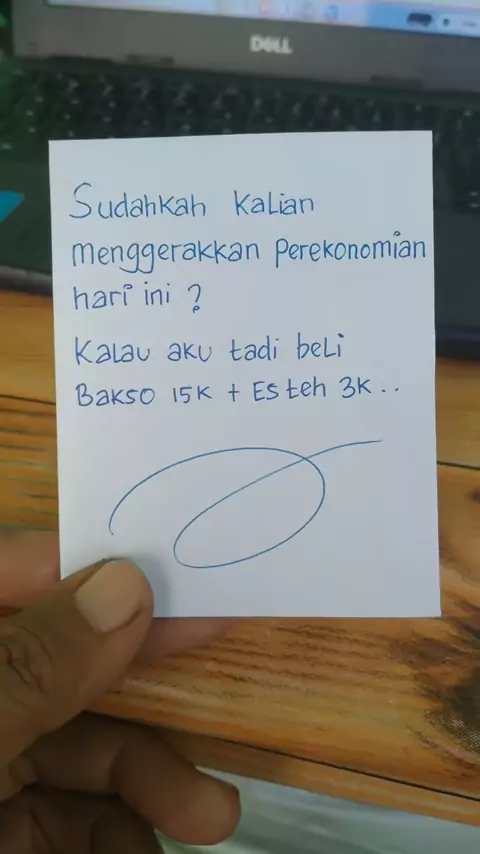 DELL
Sudahkah kalian
menggerakkan perekonomian
hari ini ?
Kalau aku tadi beli
Bakso 15K + Es teh 3K ..